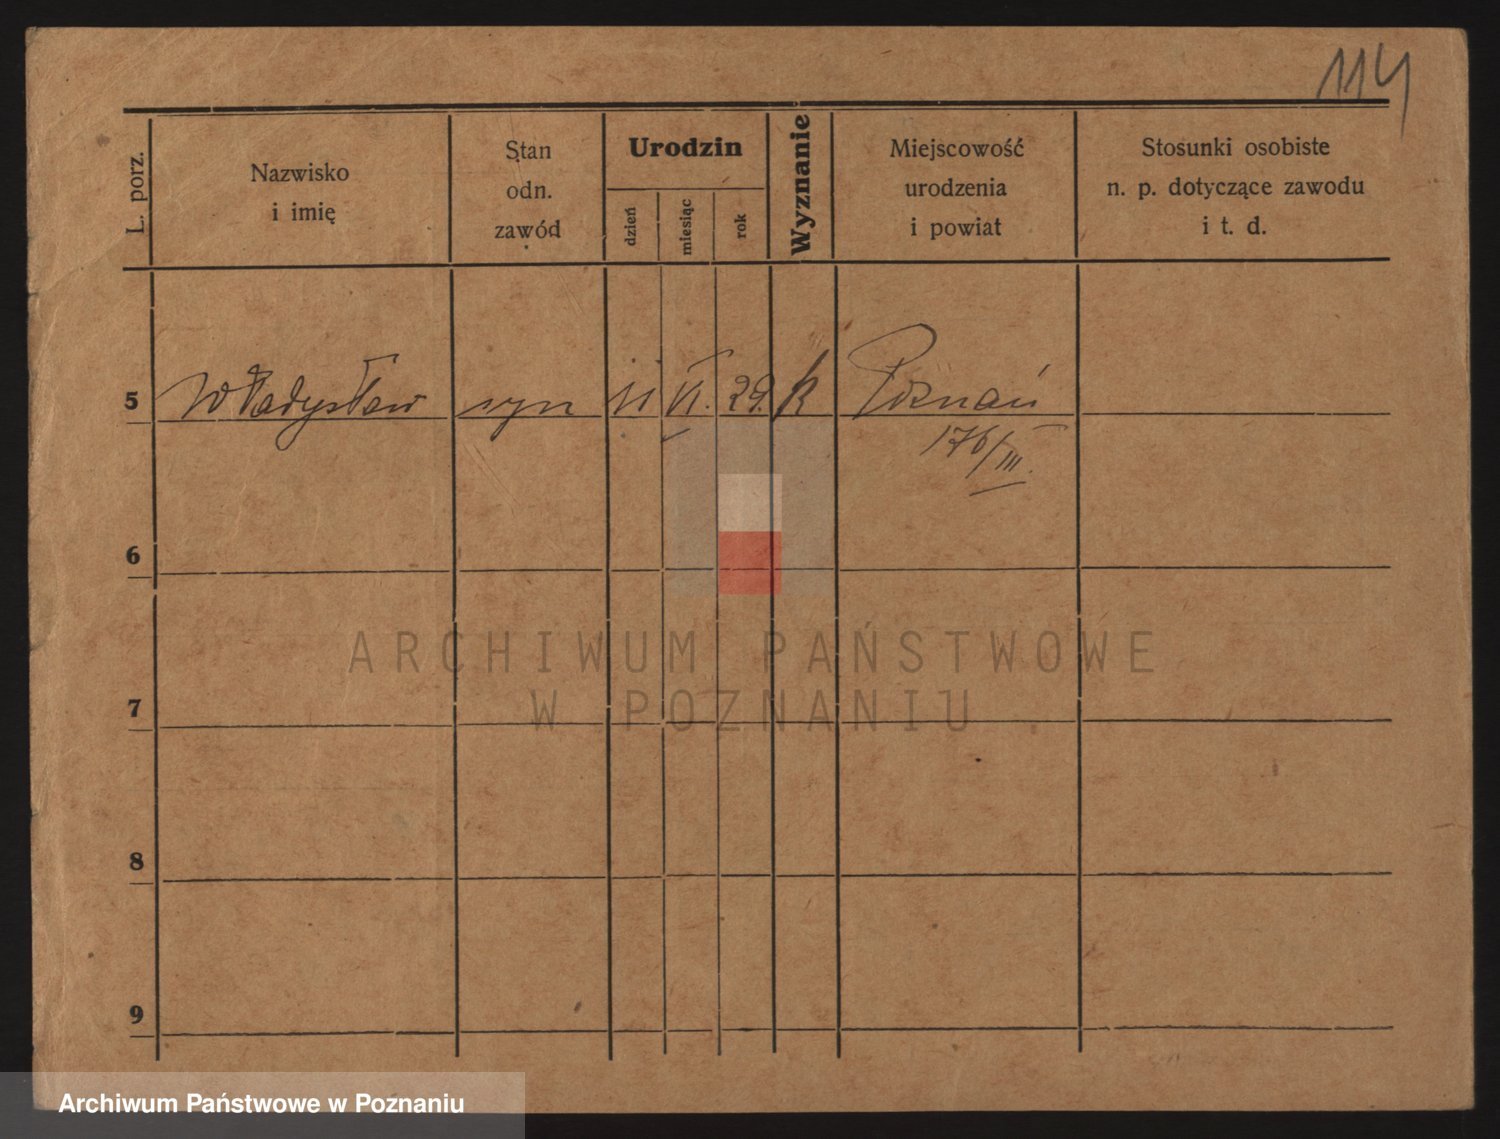 114
L. porz.
Nazwisko
i imię
Stan
odn.
zawód
Urodzin
dzień
miesiąc
rok
Wyznanie
Miejscowość
urodzenia
i powiat
Stosunki osobiste
n. p. dotyczące zawodu
i t. d.
5 Władysław syn 11 VI. 29. k Poznań
176/III.
6
7
8
9
ARCHIWUM PAŃSTWOWE
W POZNANIU .
Archiwum Państwowe w Poznaniu